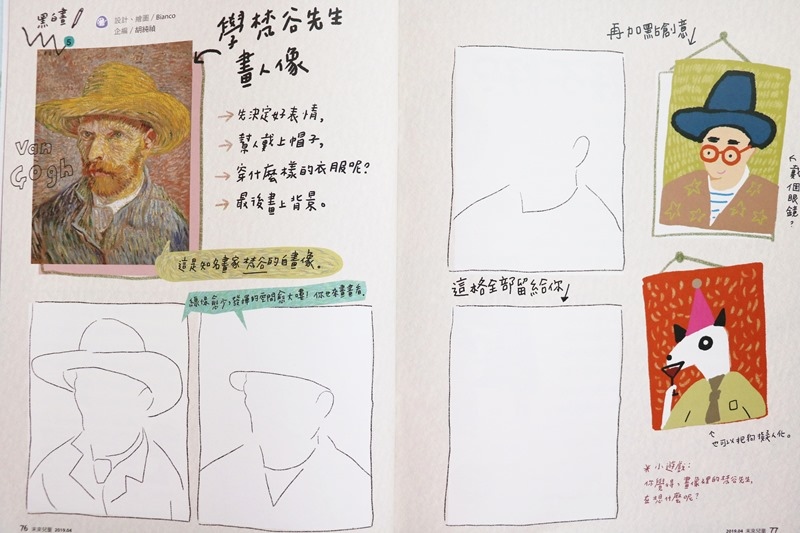 黑白畫
5
設計・繪圖 / Bianco
企編 / 胡純禎
學梵谷先生
畫人像
→先決定好表情,
→幫人戴上帽子,
→穿什麼樣的衣服呢?
→最後畫上背景。
Van
Gogh
這是知名畫家梵谷的自畫像。
線條愈少,發揮的空間愈大喔!你也來畫畫看。
76 未來兒童 2019.04
再加點創意
戴個眼鏡?
這格全部留給你
也可以把狗擬人化。
※小遊戲:
你覺得,畫像裡的梵谷先生,
在想什麼呢?
2019.04 未來兒童 77